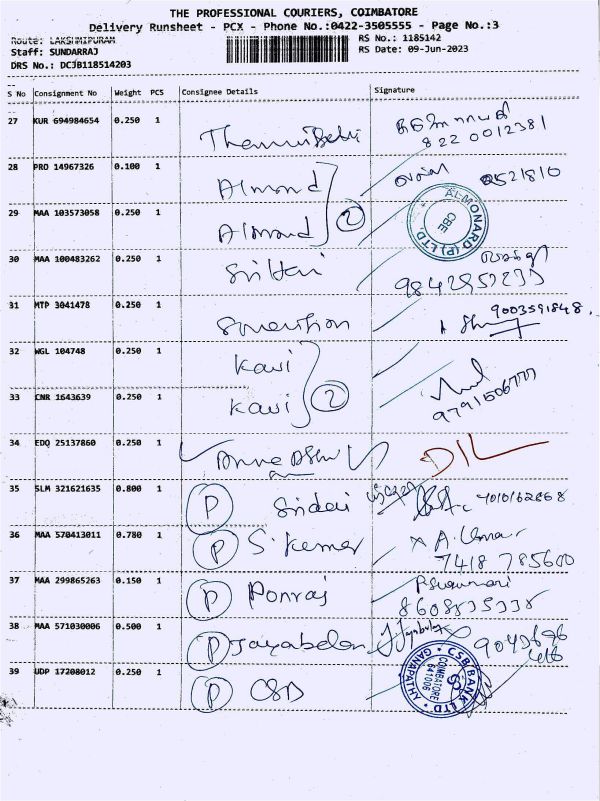 THE PROFESSIONAL COURIERS, COIMBATORE
Delivery Runsheet - PCX - Phone No.:0422-3505555 - Page No.:3
Route: LAKSHMIPURAM
RS No.: 1185142
Staff: SUNDARRAJ
RS Date: 09-Jun-2023
DRS No.: DCJB118514203
S No Consignment No Weight PCS Consignee Details Signature
27 KUR 694984654 0.250 1
822 0012381
28 PRO 14967326 0.100 1 Almond
29 MAA 103573058 0.250 1 Almond 2
ALMONARD (P) LTD. CBE
30 MAA 100483262 0.250 1 Sri Hari
31 MTP 3041478 0.250 1
9003591848
32 WGL 104748 0.250 1 Kavi
33 CNR 1643639 0.250 1 Kavi 2
9791506777
34 EDQ 25137860 0.250 1
35 SLM 321621635 0.800 1 P Sridevi
36 MAA 570413011 0.780 1 P S. Kumar A. Kumar
7418 785600
37 MAA 299865263 0.150 1 P Ponraj
38 MAA 571030006 0.500 1 P Jayabalan
39 UDP 17208012 0.250 1 P CSB
CSB BANK LTD GANAPATHY COIMBATORE 641006